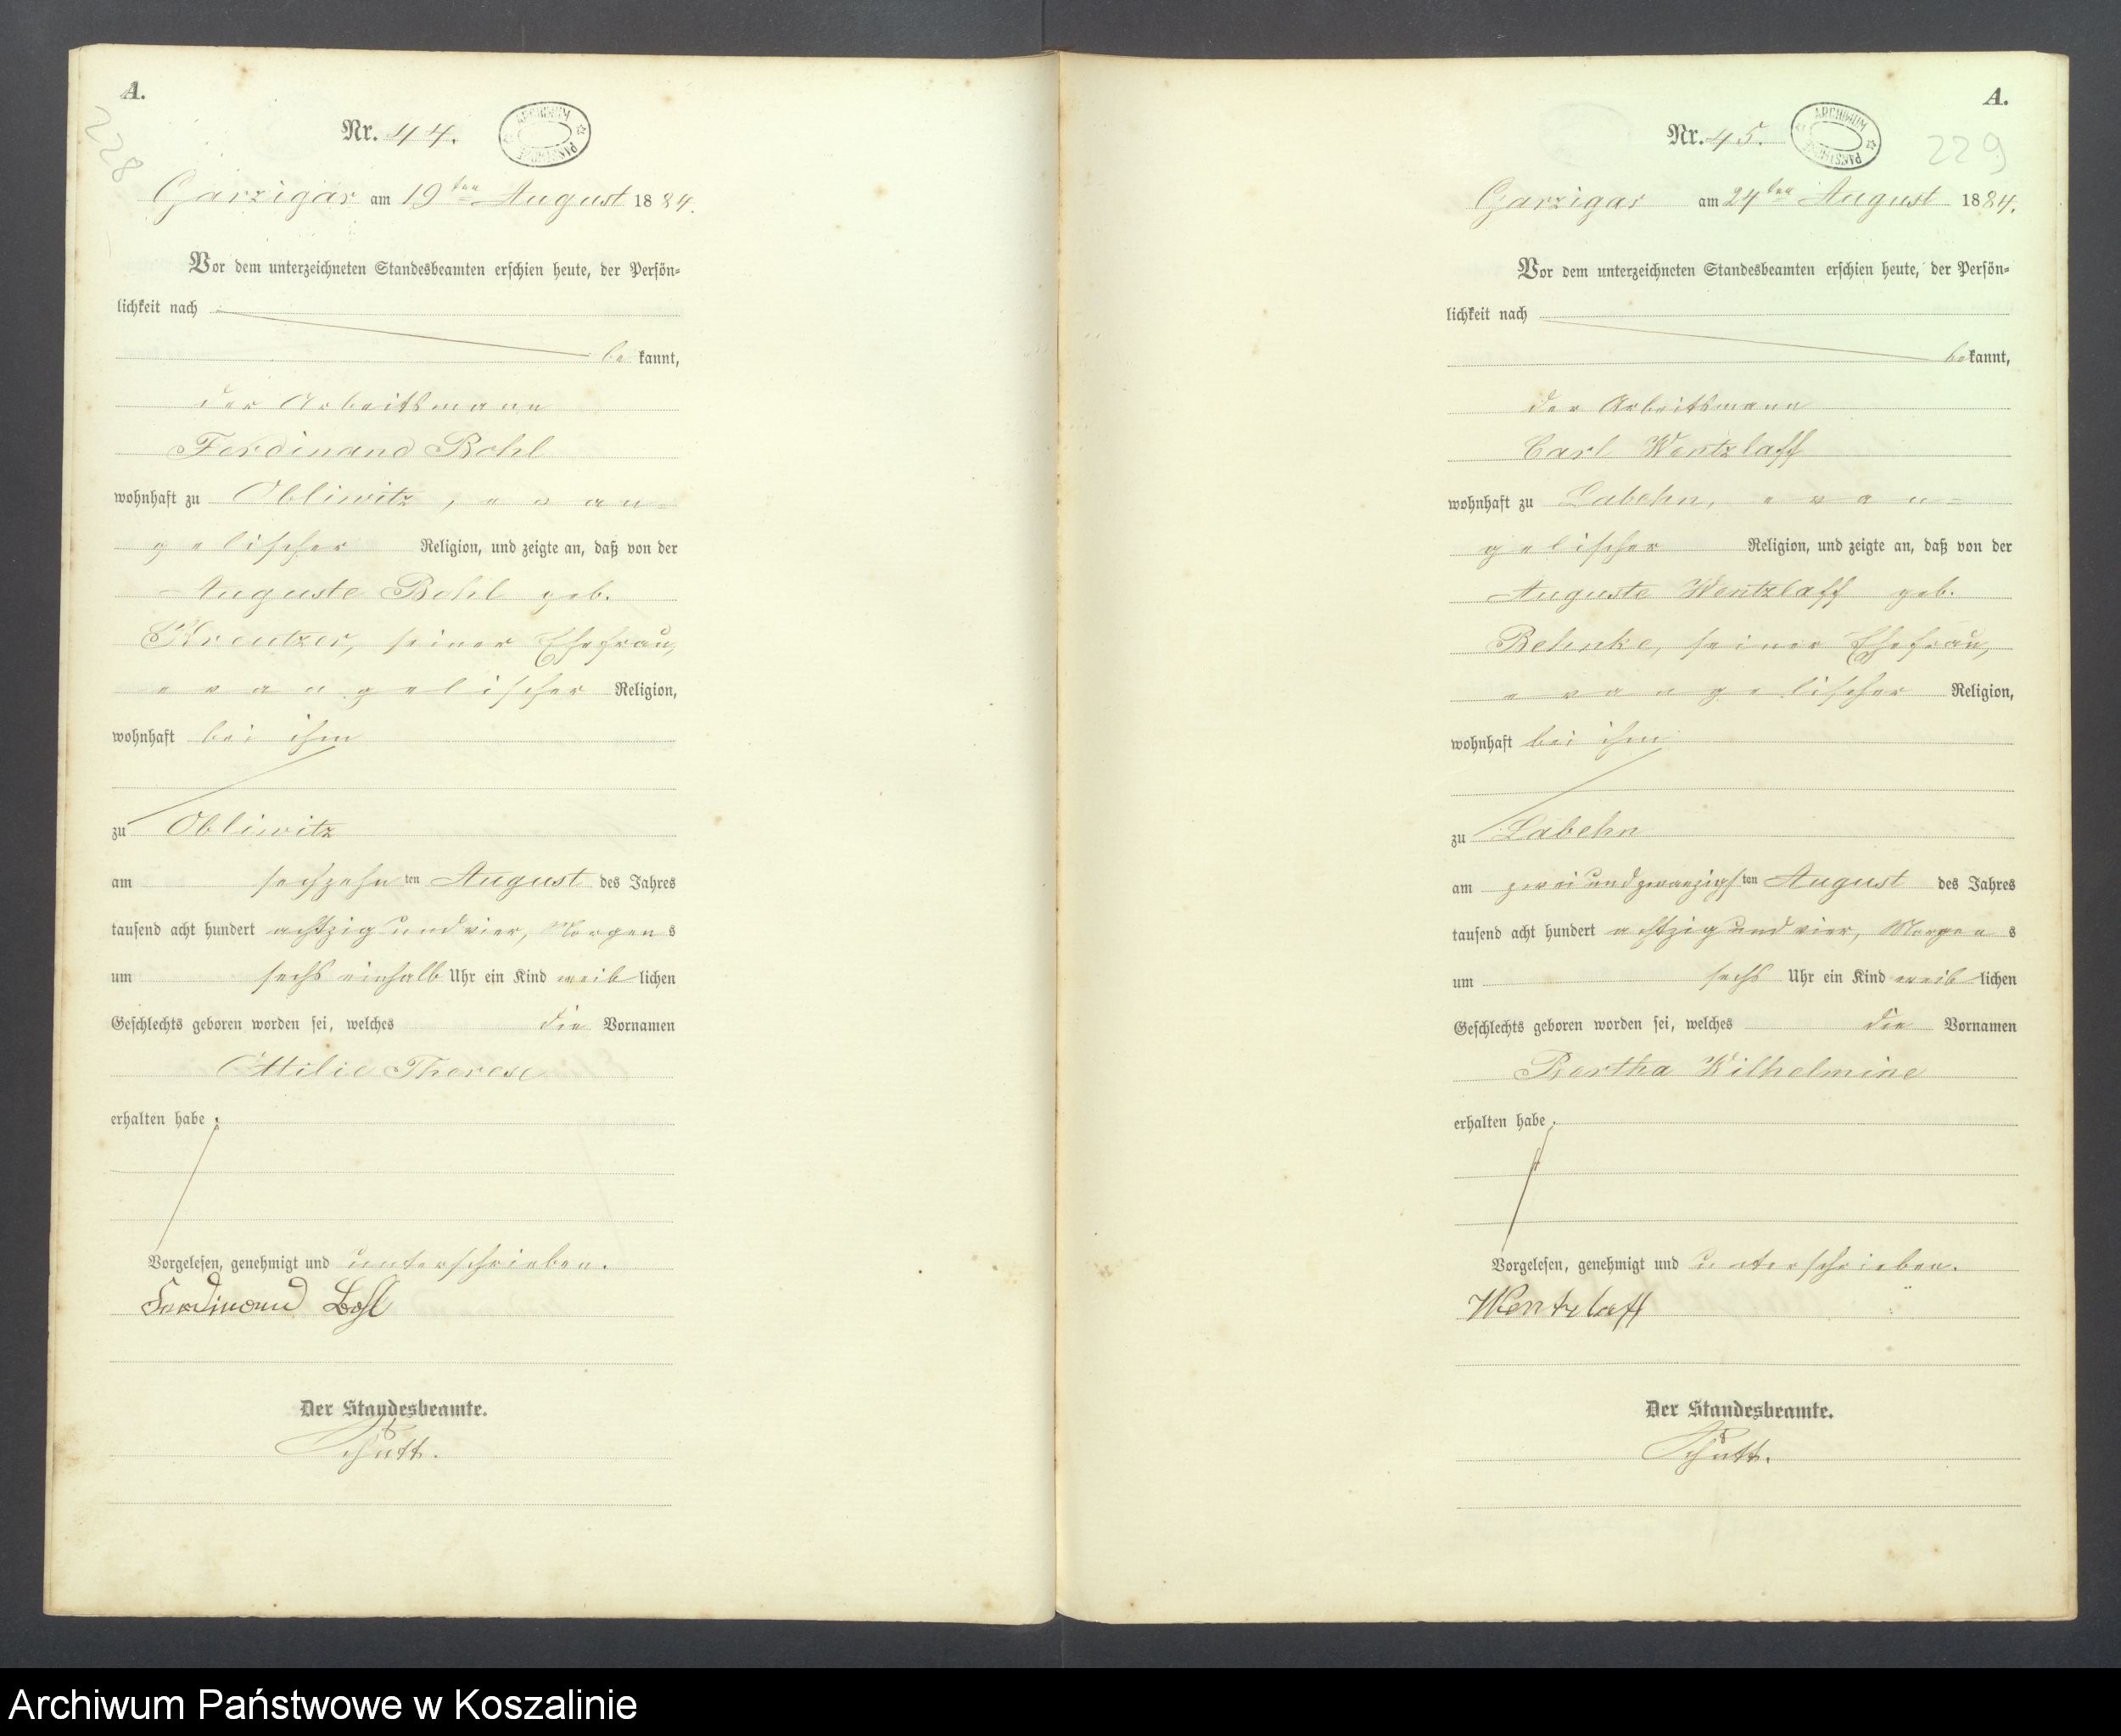 A.
228
Nr. 44.
ARCHIWUM PAŃSTWOWE
Garzigar am 19ten August 1884.
Vor dem unterzeichneten Standesbeamten erschien heute, der Persön-
lichkeit nach
bekannt,
der Arbeitsmann
Ferdinand Bohl
wohnhaft zu Obliwitz, evan-
gelischer Religion, und zeigte an, daß von der
Auguste Bohl geb.
Kreutzer, seiner Ehefrau,
evangelischer Religion,
wohnhaft bei ihm
zu Obliwitz
am sechzehnten August des Jahres
tausend acht hundert achtzig und vier, Morgens
um sechs einhalb Uhr ein Kind weiblichen
Geschlechts geboren worden sei, welches die Vornamen
Ottilie Therese
erhalten habe.
Vorgelesen, genehmigt und unterschrieben.
Ferdinand Bohl
Der Standesbeamte.
Schütt.
A.
229
Nr. 45.
ARCHIWUM PAŃSTWOWE
Garzigar am 24ten August 1884.
Vor dem unterzeichneten Standesbeamten erschien heute, der Persön-
lichkeit nach
bekannt,
der Arbeitsmann
Carl Wentzlaff
wohnhaft zu Labehn, evan-
gelischer Religion, und zeigte an, daß von der
Auguste Wentzlaff geb.
Behnke, seiner Ehefrau,
evangelischer Religion,
wohnhaft bei ihm
zu Labehn
am zwei und zwanzigsten August des Jahres
tausend acht hundert achtzig und vier, Morgens
um sechs Uhr ein Kind weiblichen
Geschlechts geboren worden sei, welches die Vornamen
Bertha Wilhelmine
erhalten habe.
Vorgelesen, genehmigt und unterschrieben.
Wentzlaff
Der Standesbeamte.
Schütt.
Archiwum Państwowe w Koszalinie